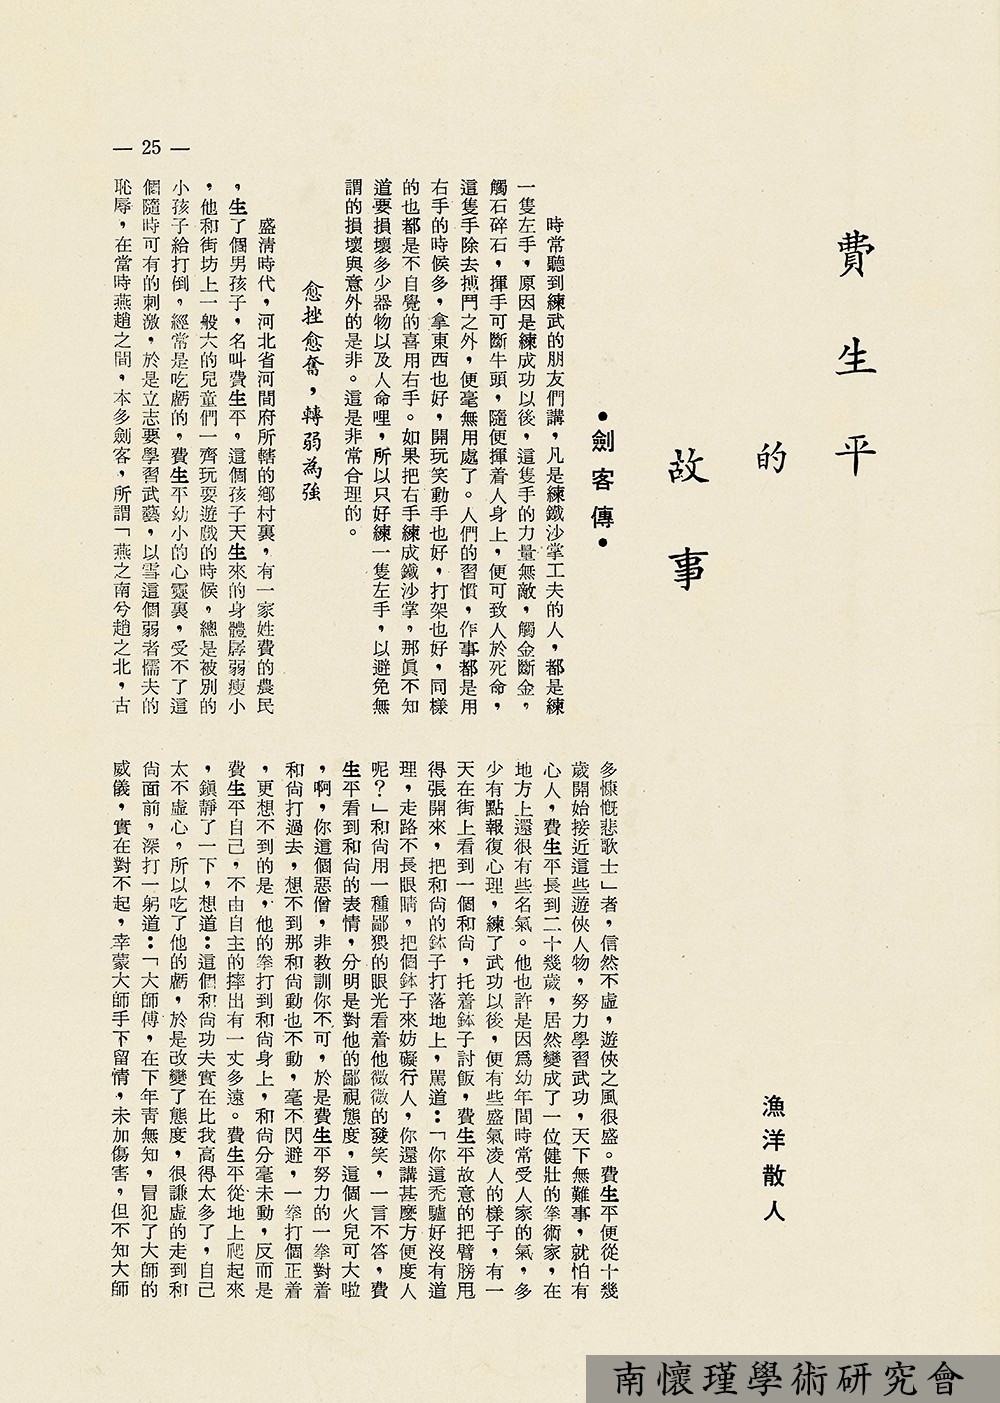 費生平
的
故事
漁洋散人
•劍客傳•
時常聽到練武的朋友們講，凡是練鐵沙掌工夫的人，都是練
一隻左手，原因是練成功以後，這隻手的力量無敵，觸金斷金，
觸石碎石，揮手可斷牛頭，隨便揮着人身上，便可致人於死命，
這隻手除去搏鬥之外，便毫無用處了。人們的習慣，作事都是用
右手的時候多，拿東西也好，開玩笑動手也好，打架也好，同樣
的也都是不自覺的喜用右手。如果把右手練成鐵沙掌，那眞不知
道要損壞多少器物以及人命哩，所以只好練一隻左手，以避免無
謂的損壞與意外的是非。這是非常合理的。
愈挫愈奮，轉弱為強
盛清時代，河北省河間府所轄的鄉村裏，有一家姓費的農民
，生了個男孩子，名叫費生平，這個孩子天生來的身體孱弱瘦小
，他和街坊上一般大的兒童們一齊玩耍遊戲的時候，總是被別的
小孩子給打倒，經常是吃虧的，費生平幼小的心靈裏，受不了這
個隨時可有的刺激，於是立志要學習武藝，以雪這個弱者懦夫的
恥辱，在當時燕趙之間，本多劍客，所謂「燕之南兮趙之北，古
多慷慨悲歌士」者，信然不虛，遊俠之風很盛。費生平便從十幾
歲開始接近這些遊俠人物，努力學習武功，天下無難事，就怕有
心人，費生平長到二十幾歲，居然變成了一位健壯的拳術家，在
地方上還很有些名氣。他也許是因爲幼年間時常受人家的氣，多
少有點報復心理，練了武功以後，便有些盛氣凌人的樣子，有一
天在街上看到一個和尙，托着鉢子討飯，費生平故意的把臂膀甩
得張開來，把和尙的鉢子打落地上，罵道：「你這禿驢好沒有道
理，走路不長眼睛，把個鉢子來妨礙行人，你還講甚麼方便度人
呢？」和尙用一種鄙猥的眼光看着他微微的發笑，一言不答，費
生平看到和尙的表情，分明是對他的鄙視態度，這個火兒可大啦
，啊，你這個惡僧，非教訓你不可，於是費生平努力的一拳對着
和尙打過去，想不到那和尙動也不動，毫不閃避，一拳打個正着
，更想不到的是，他的拳打到和尙身上，和尙分毫未動，反而是
費生平自己，不由自主的摔出有一丈多遠。費生平從地上爬起來
，鎭靜了一下，想道：這個和尙功夫實在比我高得太多了，自己
太不虛心，所以吃了他的虧，於是改變了態度，很謙虛的走到和
尙面前，深打一躬道：「大師傅，在下年靑無知，冒犯了大師的
威儀，實在對不起，幸蒙大師手下留情，未加傷害，但不知大師
— 25 —
南懷瑾學術研究會